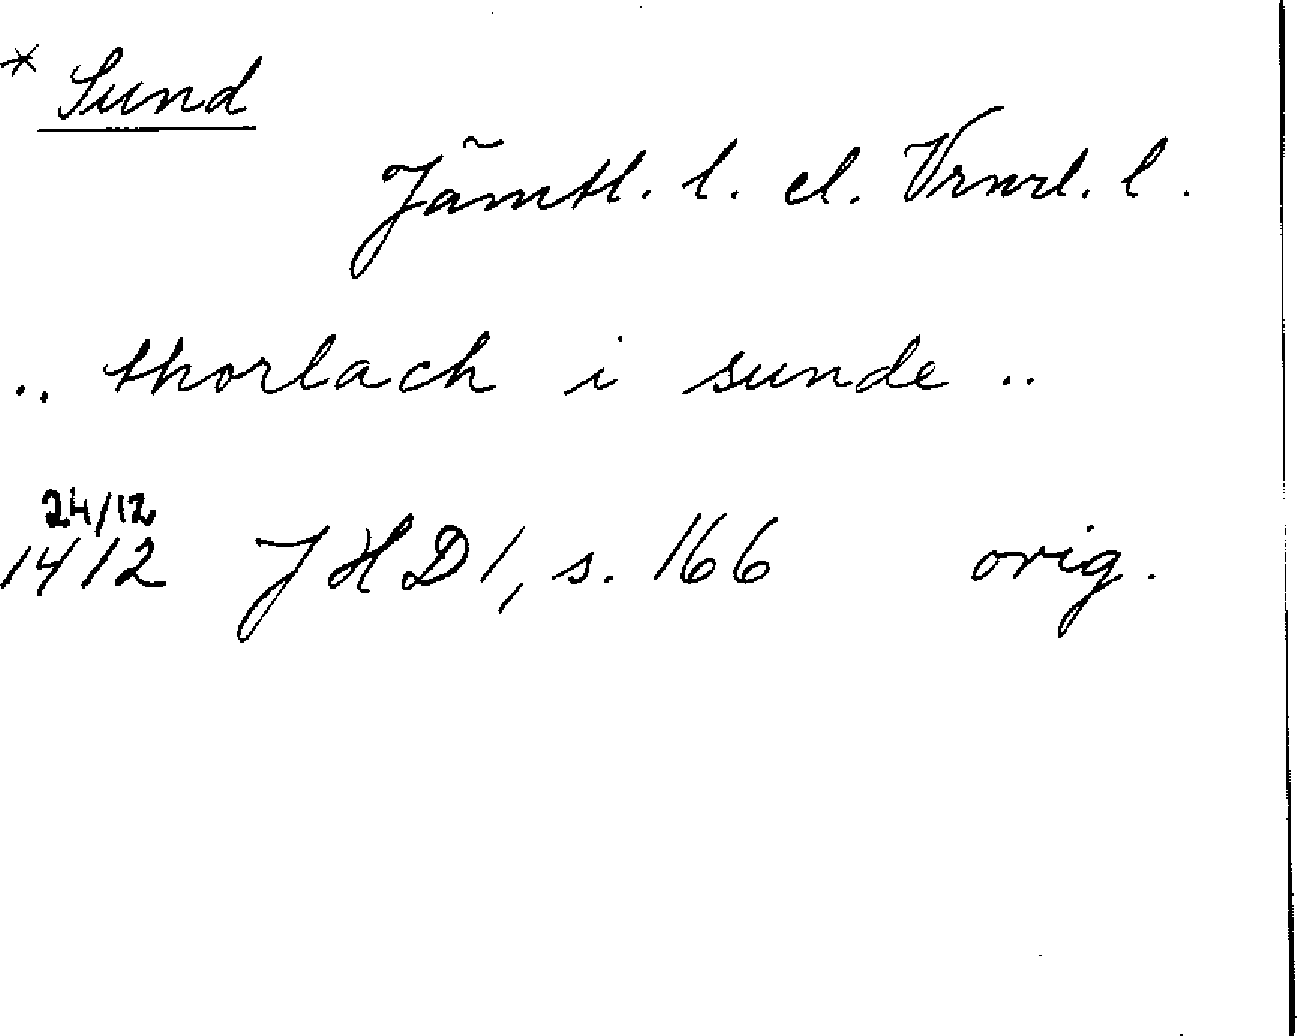 * Sund
Jämtl. l. el. Vrnrl. l.
.. thorlach i sunde ..
24/12
1412 JHD 1, s. 166 orig.